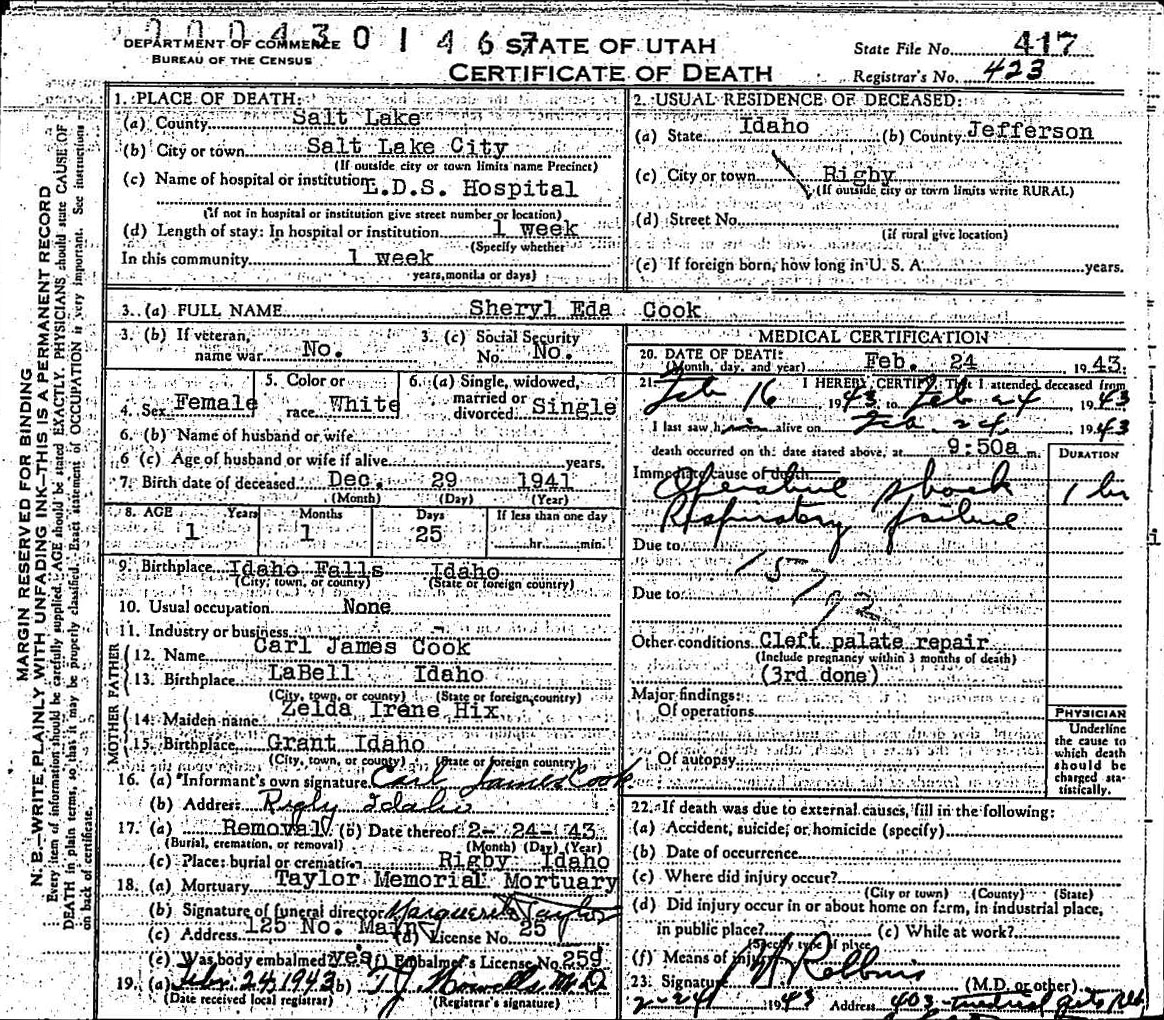 2 0 0 4 3 0 1 4 6 7
DEPARTMENT OF COMMERCE
BUREAU OF THE CENSUS
STATE OF UTAH
CERTIFICATE OF DEATH
State File No. 417
Registrar's No. 423
MARGIN RESERVED FOR BINDING
N. B.—WRITE PLAINLY WITH UNFADING INK—THIS IS A PERMANENT RECORD
Every item of information should be carefully supplied. AGE should be stated EXACTLY. PHYSICIANS should state CAUSE OF
DEATH in plain terms, so that it may be properly classified. Exact statement of OCCUPATION is very important. See instructions
on back of certificate.
1. PLACE OF DEATH:
(a) County Salt Lake
(b) City or town Salt Lake City
(If outside city or town limits name Precinct)
(c) Name of hospital or institution L.D.S. Hospital
(If not in hospital or institution give street number or location)
(d) Length of stay: In hospital or institution 1 week
(Specify whether
In this community 1 week
years, months or days)
2. USUAL RESIDENCE OF DECEASED:
(a) State Idaho (b) County Jefferson
(c) City or town Rigby
(If outside city or town limits write RURAL)
(d) Street No.
(if rural give location)
(e) If foreign born, how long in U. S. A. years.
3. (a) FULL NAME Sheryl Eda Cook
3. (b) If veteran, name war No.
3. (c) Social Security No. No.
4. Sex Female
5. Color or race White
6. (a) Single, widowed, married or divorced Single
6. (b) Name of husband or wife
6 (c) Age of husband or wife if alive years.
7. Birth date of deceased Dec. 29 1941
(Month) (Day) (Year)
8. AGE Years Months Days If less than one day
1 1 25 hr. min.
9. Birthplace Idaho Falls Idaho
(City, town, or county) (State or foreign country)
10. Usual occupation None
11. Industry or business
FATHER
12. Name Carl James Cook
13. Birthplace LaBell Idaho
(City, town, or county) (State or foreign country)
MOTHER
14. Maiden name Zelda Irene Hix
15. Birthplace Grant Idaho
(City, town, or county) (State or foreign country)
16. (a) Informant's own signature Carl James Cook
(b) Address Rigby Idaho
17. (a) Removal (b) Date thereof 2- 24- 43
(Burial, cremation, or removal) (Month) (Day) (Year)
(c) Place: burial or cremation Rigby Idaho
18. (a) Mortuary Taylor Memorial Mortuary
(b) Signature of funeral director Marguerite Taylor
(c) Address 125 No. Main (d) License No. 25
(e) Was body embalmed? yes (f) Embalmer's License No. 259
19. (a) Febr. 24, 1943 (b) T.J. Howells M.D.
(Date received local registrar) (Registrar's signature)
MEDICAL CERTIFICATION
20. DATE OF DEATH:
(Month, day, and year) Feb. 24 1943.
21. I HEREBY CERTIFY, That I attended deceased from
Feb 16 1943 to Feb 24 1943
I last saw h alive on Feb. 24 1943
death occurred on the date stated above, at 9:50a m.
DURATION
Immediate cause of death
Operative shock 1 hr
Respiratory failure
Due to
157
Due to
192
Other conditions Cleft palate repair
(Include pregnancy within 3 months of death)
(3rd done)
Major findings:
Of operations
Of autopsy
PHYSICIAN
Underline
the cause to
which death
should be
charged sta-
tistically.
22. If death was due to external causes, fill in the following:
(a) Accident, suicide, or homicide (specify)
(b) Date of occurrence
(c) Where did injury occur?
(City or town) (County) (State)
(d) Did injury occur in or about home on farm, in industrial place,
in public place? (e) While at work?
(Specify type of place)
(f) Means of injury
23. Signature (M.D. or other)
2-24 1943 Address 403